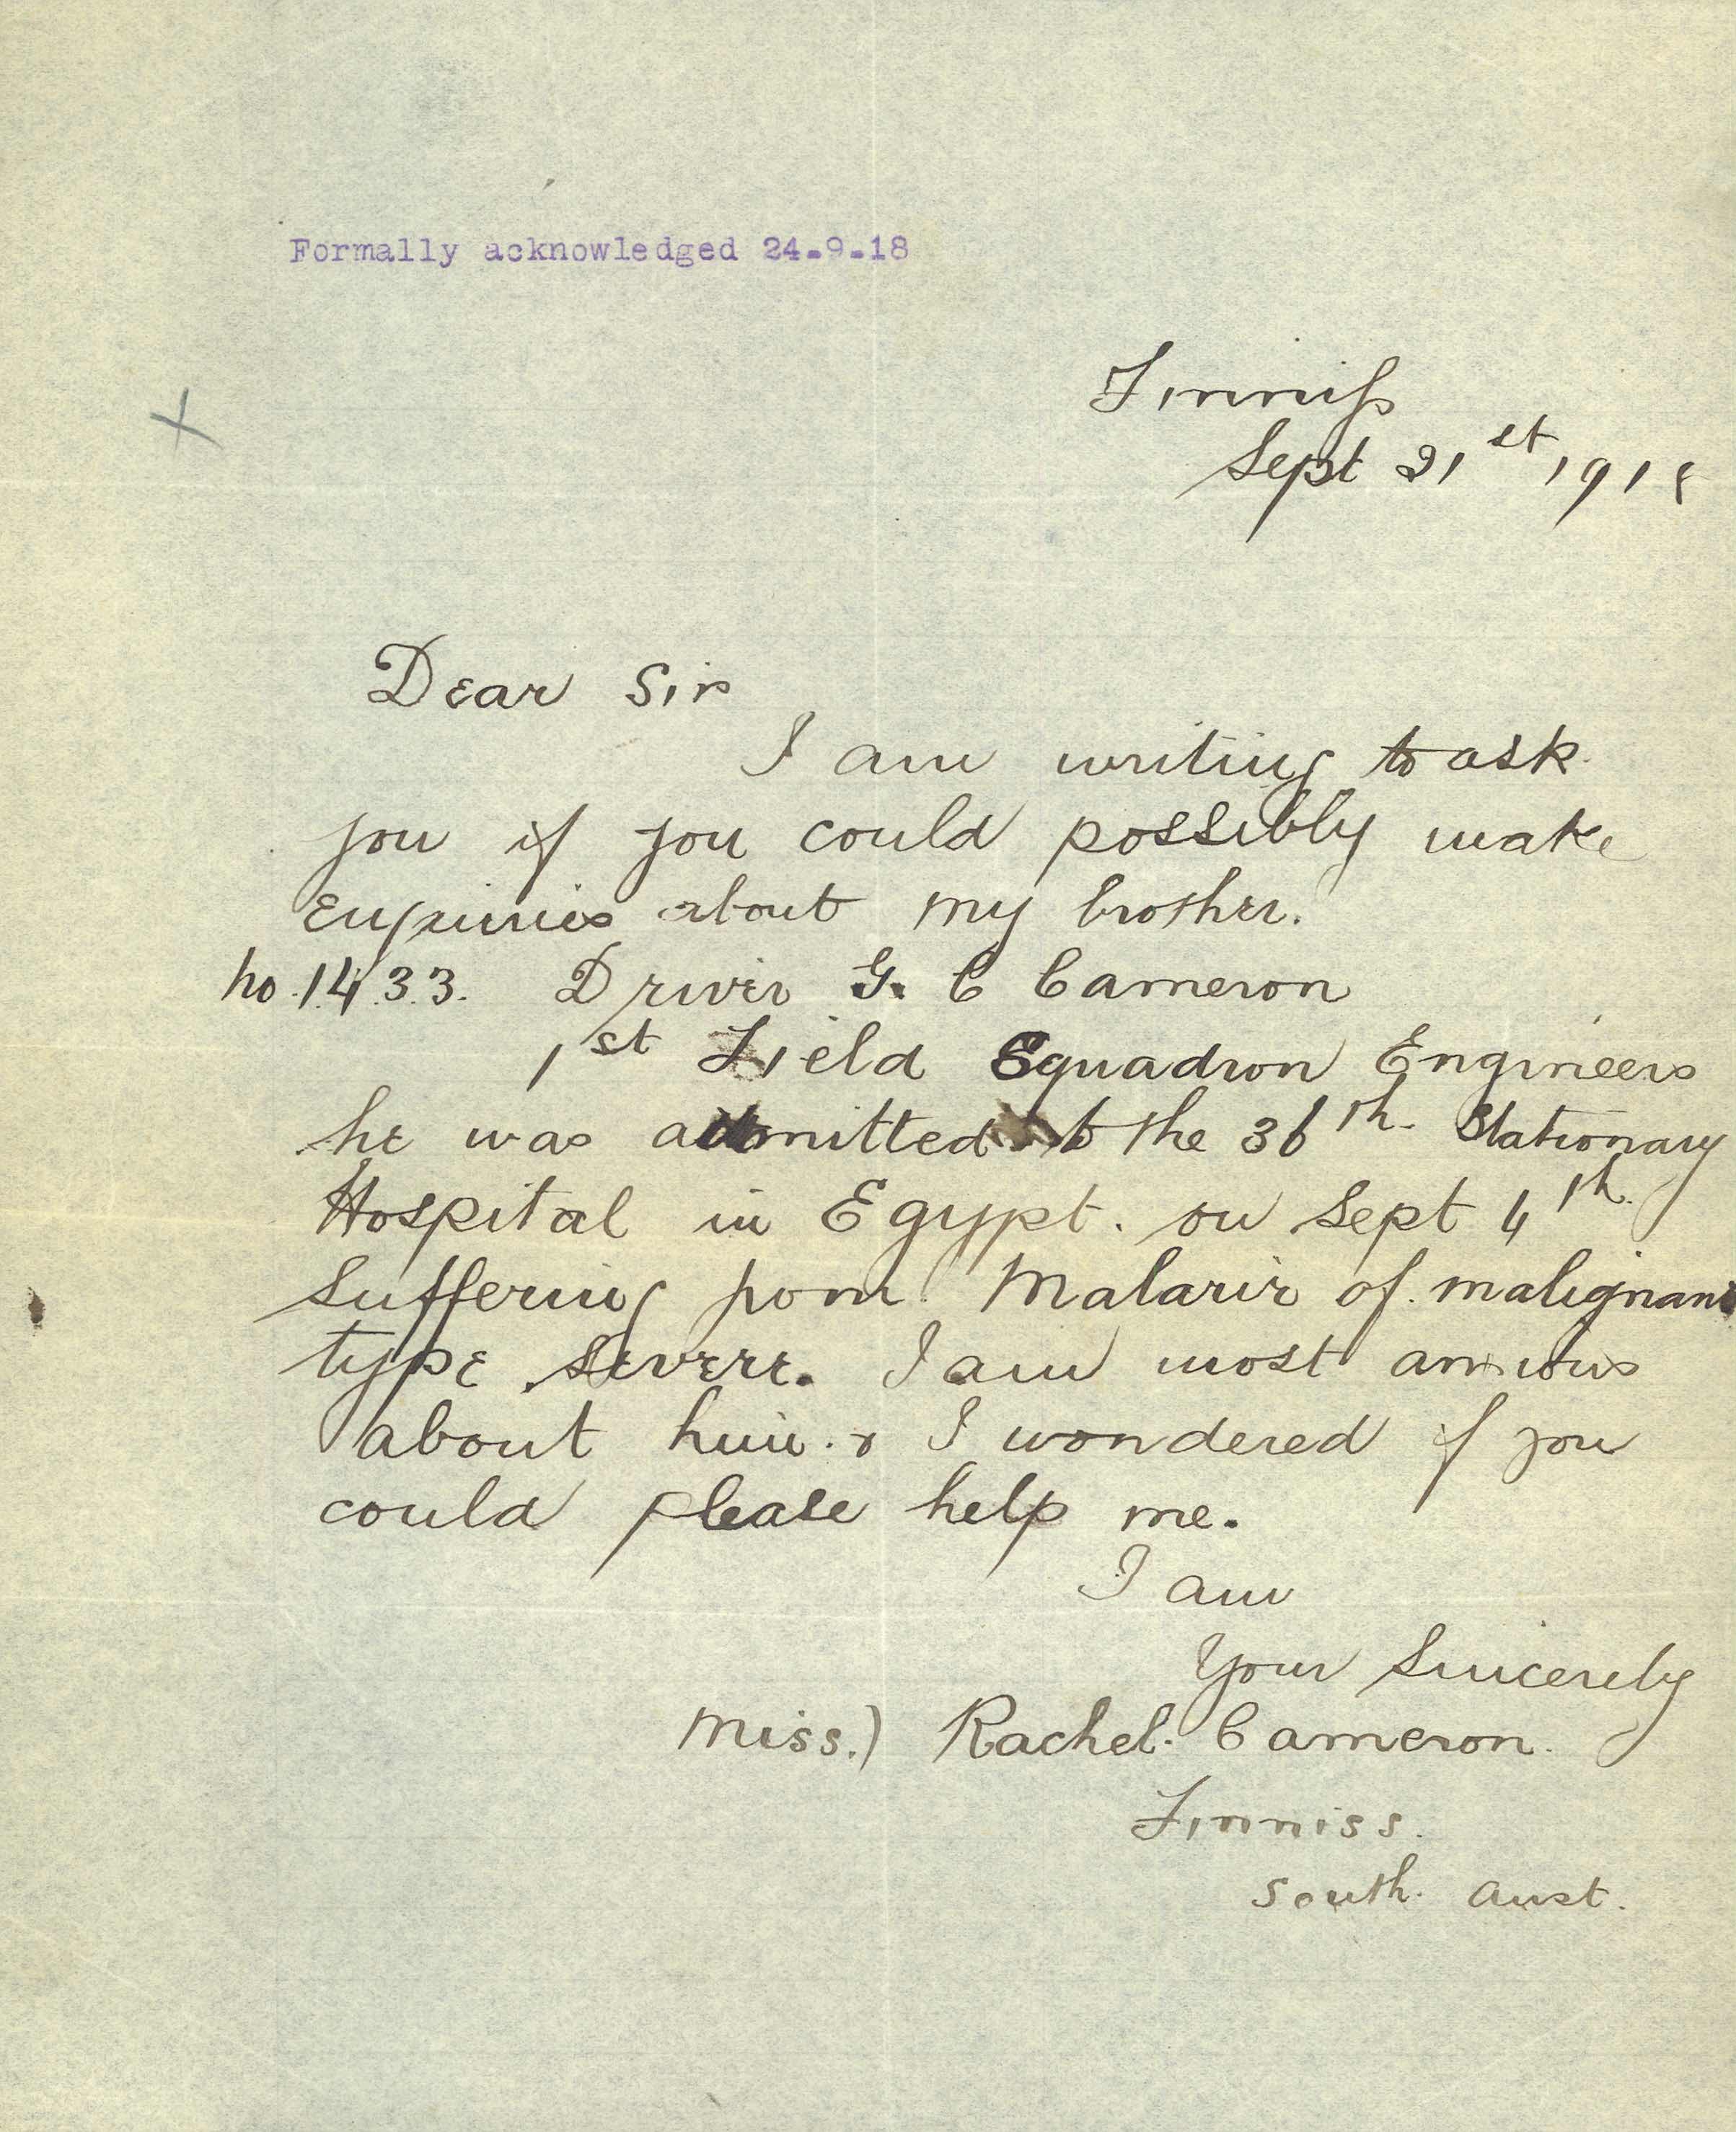 Formally acknowledged 24-9-18
Finniss
Sept 21st 1918
Dear Sir
I am writing to ask
you if you could possibly make
enquiries about my brother.
No. 1433. Driver G. C Cameron
1st Field Squadron Engineers
he was admitted to the 36th. Stationary
Hospital in Egypt. on Sept 4th.
suffering from Malaria of malignant
type severe. I am most anxious
about him. & I wondered if you
could please help me.
I am
Your Sincerely
Miss.) Rachel. Cameron.
Finniss.
South. Aust.